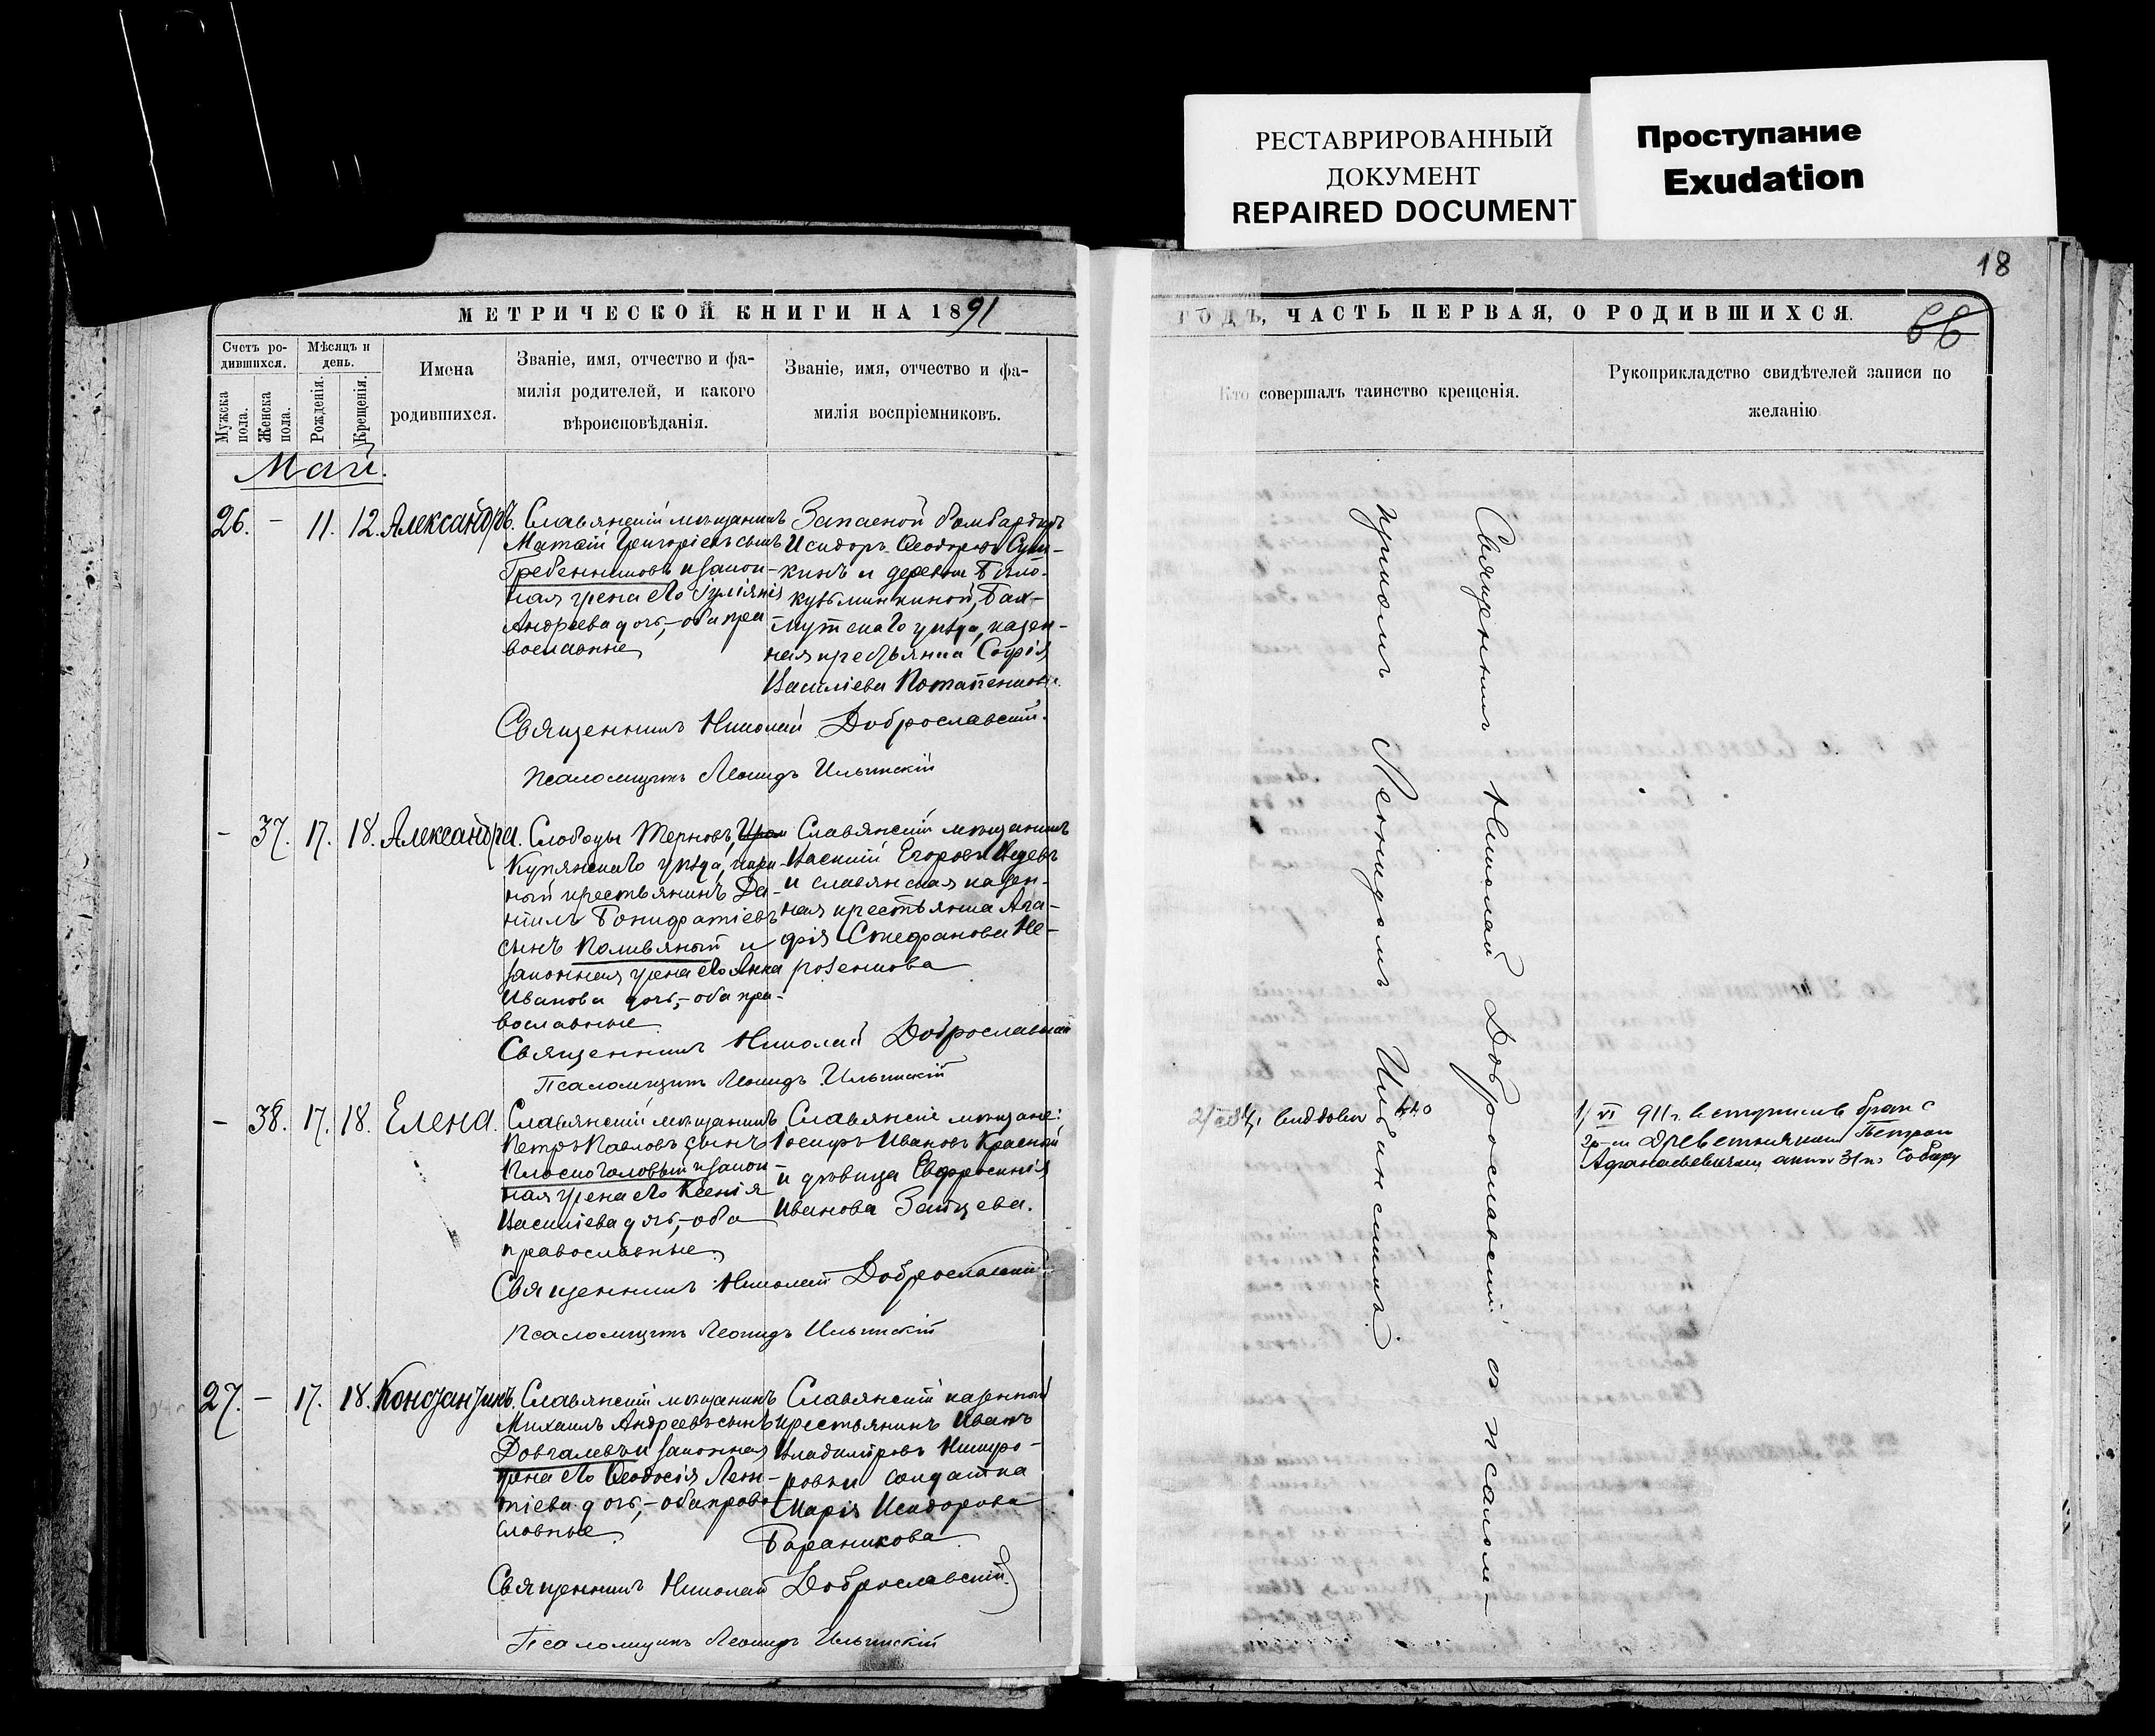 РЕСТАВРИРОВАННЫЙ
ДОКУМЕНТ
REPAIRED DOCUMENT
Проступание
Exudation
18
МЕТРИЧЕСКОЙ КНИГИ НА 1891
ГОДЪ, ЧАСТЬ ПЕРВАЯ, О РОДИВШИХСЯ.
Счетъ ро-
дившихся.
Мужска
пола.
Женска
пола.
Мѣсяцъ и
день.
Рожденія.
Крещенія.
Имена
родившихся.
Званіе, имя, отчество и фа-
милія родителей, и какого
вѣроисповѣданія.
Званіе, имя, отчество и фа-
милія воспріемниковъ.
Кто совершалъ таинство крещенія.
Рукоприкладство свидѣтелей записи по
желанію
Май.
26. - 11. 12. Александръ.
Славянскій мѣщанинъ
Матѳій Григоріевъ сынъ
Гребенниковъ и закон-
ная жена его Іуліянія
Андреева дочь,- оба пра-
вославные
Запасной бомбардиръ
Исидоръ Ѳеодоровъ
кинъ и деревни Бѣло-
кузьминкиной, Бах-
мутскаго уѣзда, казен-
ная крестьянка Софія
Василіева Потапенкова.
Священникъ Николай Доброславскій.
Псаломщикъ Леонидъ Ильинскій
- 37. 17. 18. Александра.
Слободы Терновъ,
Купянскаго уѣзда, казен-
ный крестьянинъ Да-
ніилъ Бонифатіевъ
сынъ Поливяный и
законная жена его Анна
Иванова дочь,- оба пра-
вославные
Славянскій мѣщанинъ
Василій Егоровъ
и славянская казен-
ная крестьянка Ага-
фія Стефанова Не-
Священникъ Николай Доброславскій
Псаломщикъ Леонидъ Ильинскій
- 38. 17. 18. Елена.
Славянскій мѣщанинъ
Петръ Павловъ сынъ
Плоскоголовый и закон-
ная жена его Ксенія
Василіева дочь,- оба
православные.
Славянскіе мѣщане:
Іосифъ Ивановъ Красный
и дѣвица Евфросинія
Иванова Зайцева.
Священникъ Николай Доброславскій
Псаломщикъ Леонидъ Ильинскій
27. - 17. 18. Константинъ.
Славянскій мѣщанинъ
Михаилъ Андреевъ сынъ
Довгалевъ и законная
жена его Ѳеодосія Леон-
тіева дочь,- оба право-
славные
Славянскій казенный
крестьянинъ Иванъ
Владиміровъ
и солдатка
Марія Исидорова
Бараникова.
Священникъ Николай Доброславскій
Псаломщикъ Леонидъ Ильинскій
Священникъ Николай Доброславскій съ псалом-
щикомъ Леонидомъ Ильинскимъ.
1/VI 911 г. вступила в брак с
Петром
Афанасьевичем